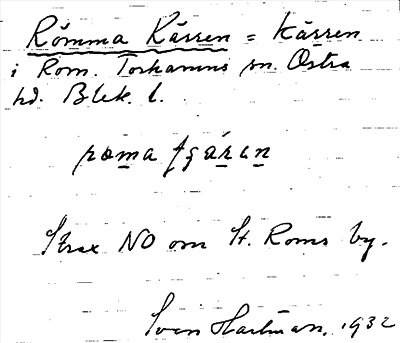 Römma Kärren = Kärren
i Rom. Torhamns sn. Östra
hd. Blek. l.
Strax NO om St. Roms by.
Sven Hartman, 1932